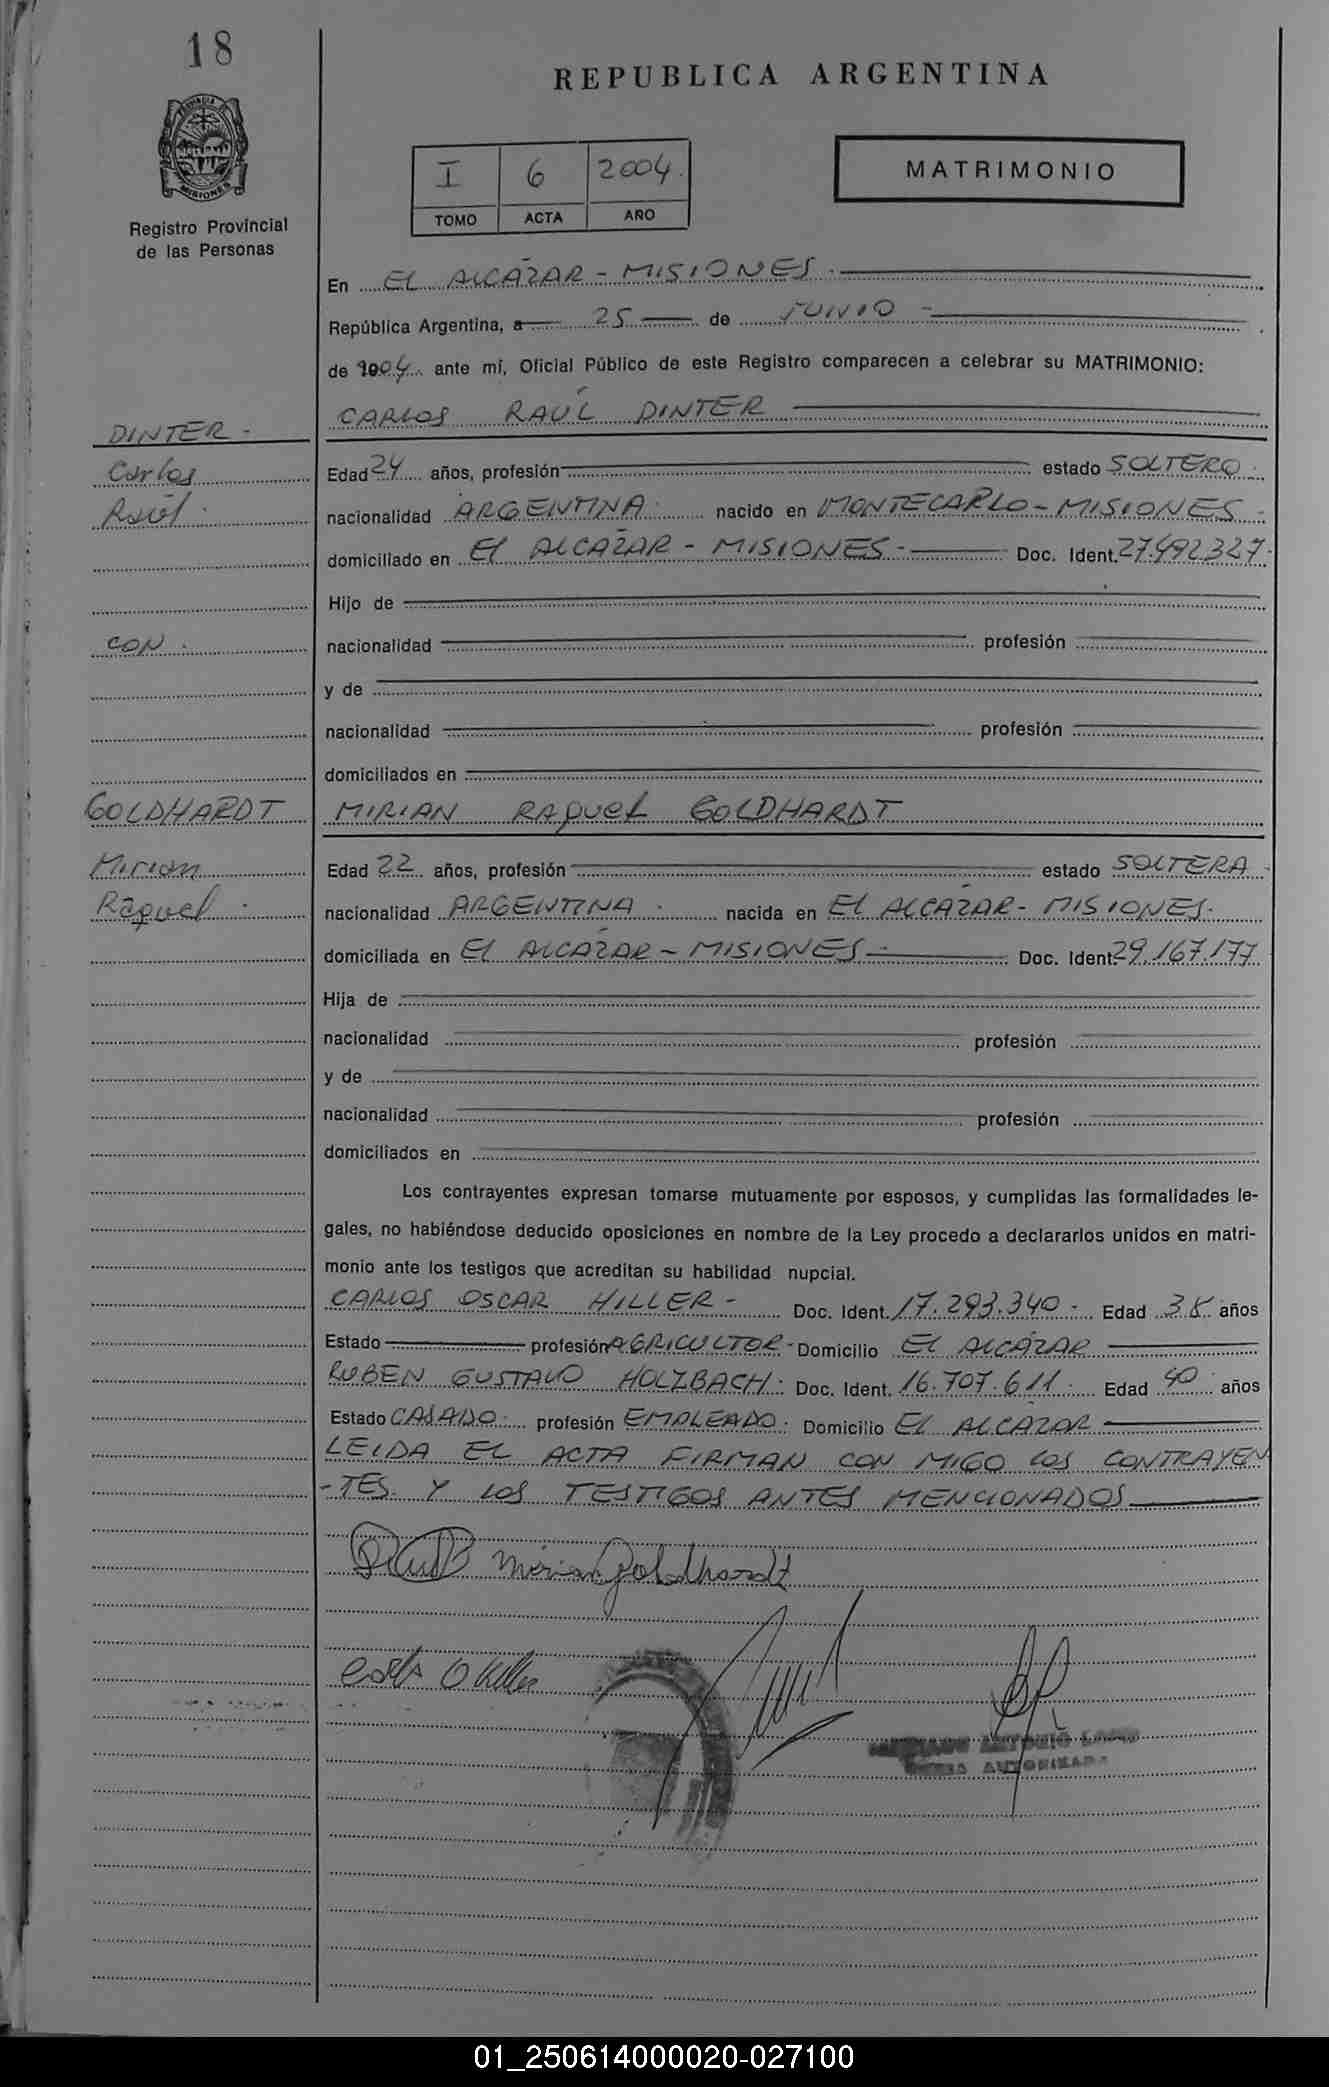 18
REPUBLICA ARGENTINA
I 6 2004.
TOMO ACTA AÑO
MATRIMONIO
MISIONES
Registro Provincial
de las Personas
En EL ALCÁZAR - MISIONES.
República Argentina, a 25 de JUNIO -
de 2004 ante mí, Oficial Público de este Registro comparecen a celebrar su MATRIMONIO:
DINTER - CARLOS RAÚL DINTER
Carlos Edad 24 años, profesión estado SOLTERO.
Raúl. nacionalidad ARGENTINA. nacido en MONTECARLO - MISIONES -
domiciliado en El ALCAZAR - MISIONES - Doc. Ident. 27.492.327.
Hijo de
CON. nacionalidad profesión
y de
nacionalidad profesión
domiciliados en
GOLDHARDT MIRIAN RAQUEL GOLDHARDT
Mirian Edad 22 años, profesión estado SOLTERA -
Raquel. nacionalidad ARGENTINA. nacida en El ALCÁZAR - MISIONES.
domiciliada en El ALCÁZAR - MISIONES - Doc. Ident. 29.167.177
Hija de
nacionalidad profesión
y de
nacionalidad profesión
domiciliados en
Los contrayentes expresan tomarse mutuamente por esposos, y cumplidas las formalidades le-
gales, no habiéndose deducido oposiciones en nombre de la Ley procedo a declararlos unidos en matri-
monio ante los testigos que acreditan su habilidad nupcial.
CARLOS OSCAR HILLER - Doc. Ident. 17.293.340 - Edad años
Estado profesión AGRICULTOR - Domicilio El ALCÁZAR
RUBEN GUSTAVO HOLZBACH. Doc. Ident. 16.707.611. Edad 40 años
Estado CASADO. profesión EMPLEADO. Domicilio El ALCÁZAR
LEIDA EL ACTA FIRMAN CON MIGO los CONTRAYEN
-TES. Y LOS TESTIGOS ANTES MENCIONADOS
Mirian Goldhardt
ANTONIO
AUTORIZADA
01_250614000020-027100